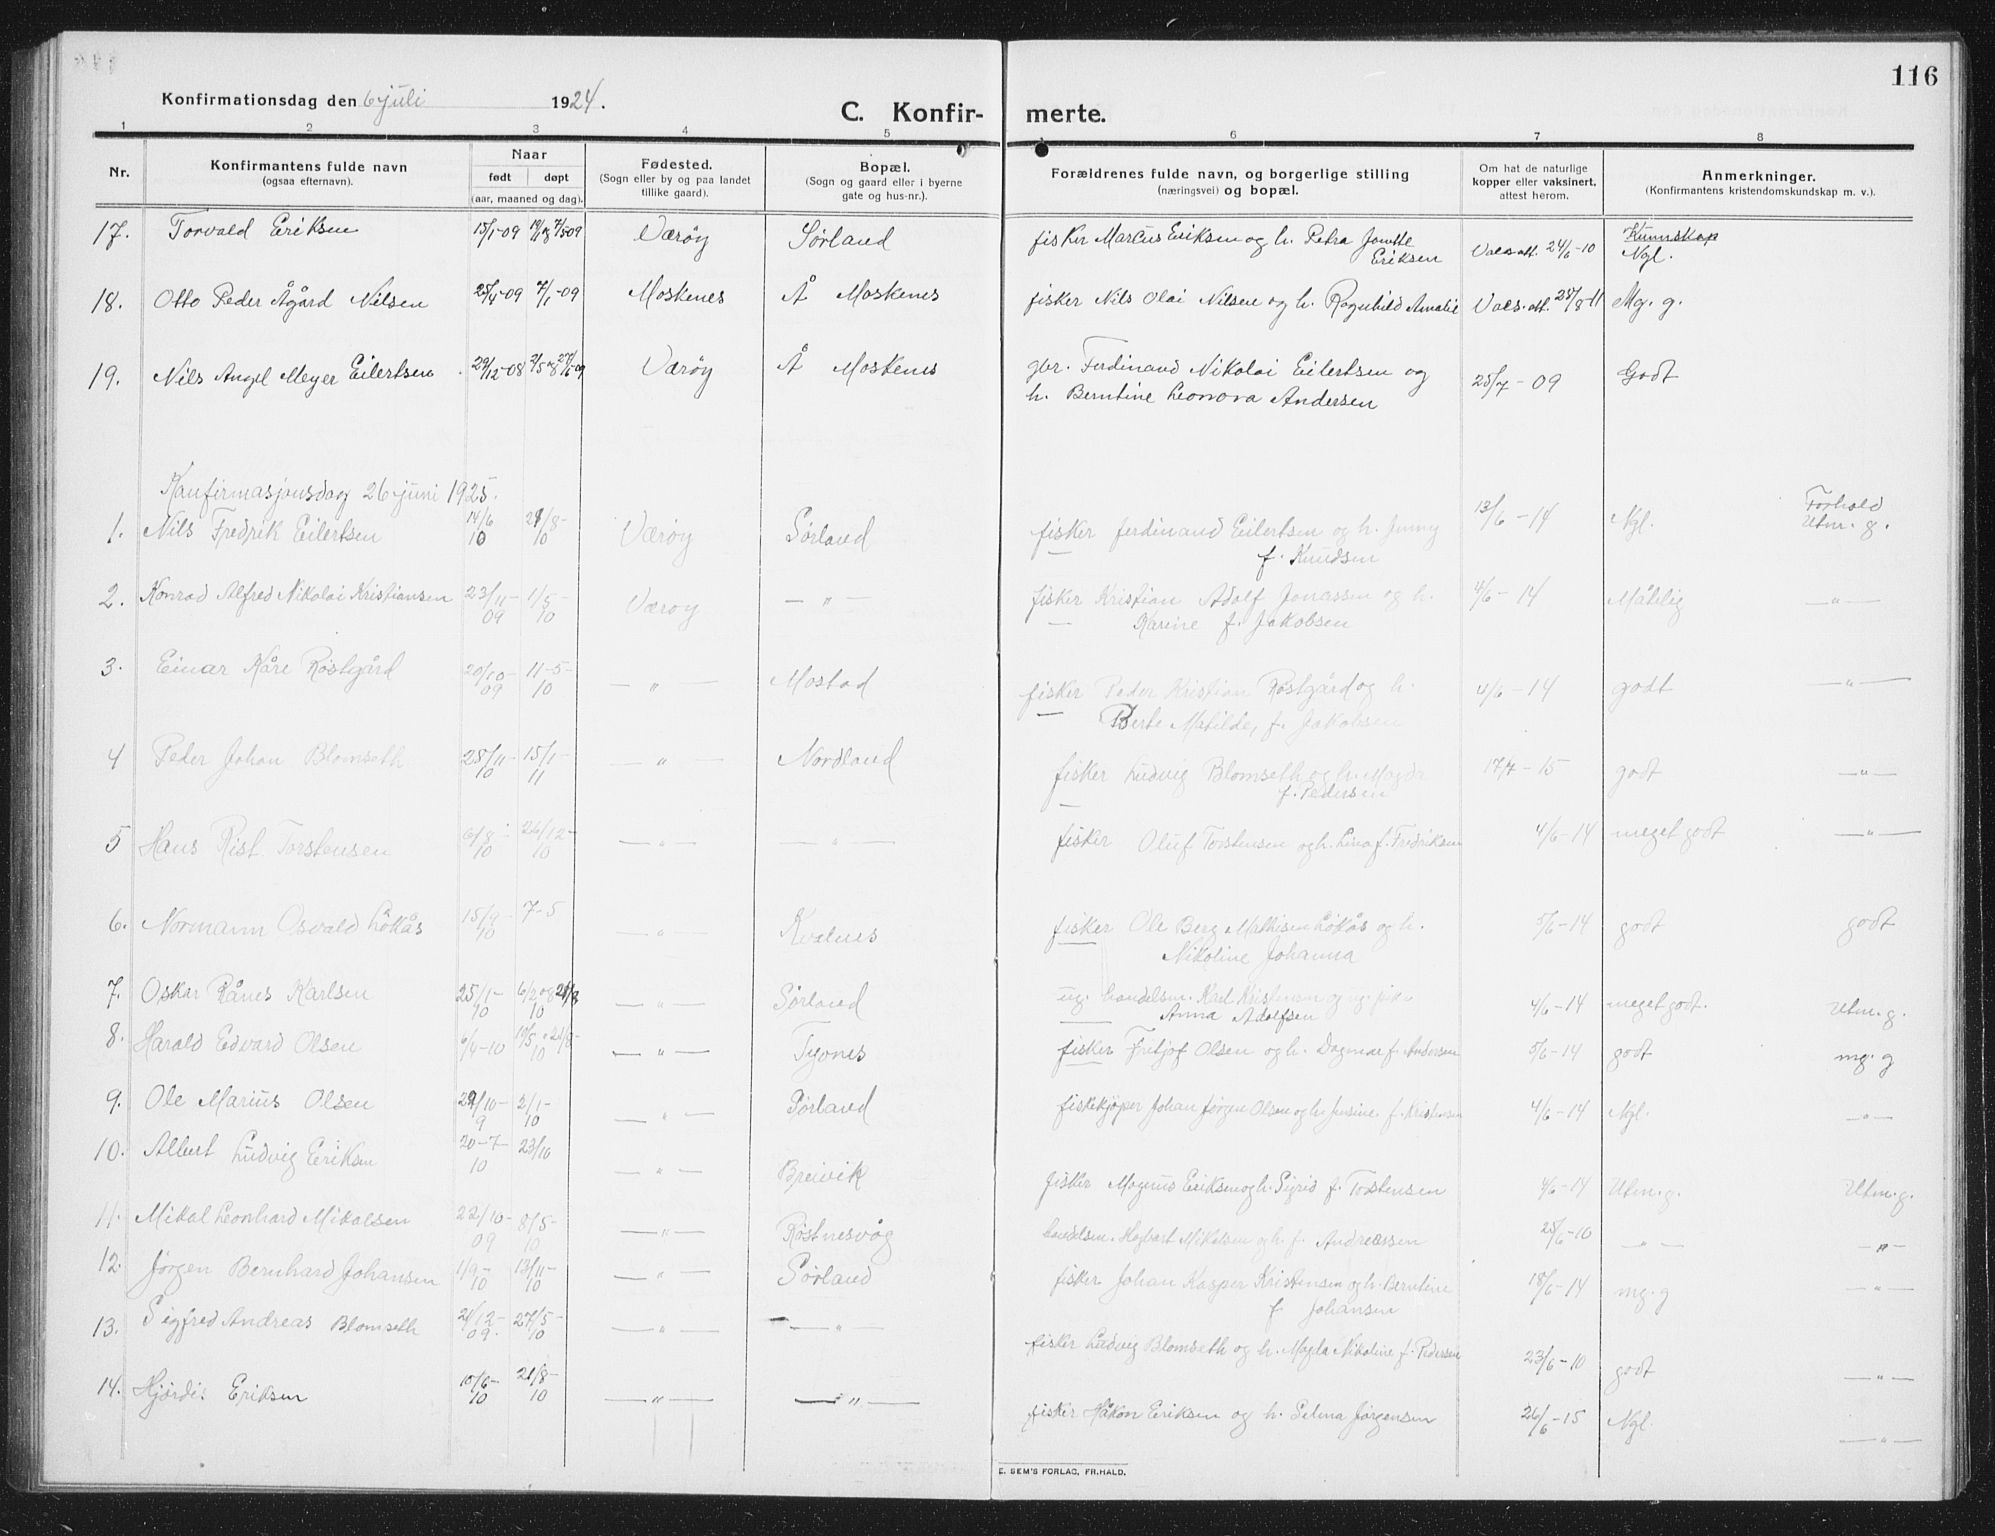 116
Konfirmationsdag den 6 juli 1924.
C. Konfir- merte.
1 2 3 4 5 6 7 8
Nr. Konfirmantens fulde navn (ogsaa efternavn). Naar født døpt (aar, maaned og dag). Fødested. (Sogn eller by og paa landet tillike gaard). Bopæl. (Sogn og gaard eller i byerne gate og hus-nr.). Forældrenes fulde navn, og borgerlige stilling (næringsvei) og bopæl. Om hat de naturlige kopper eller vaksinert, attest herom. Anmerkninger. (Konfirmantens kristendomskundskap m. v.).
17. Torvald Eriksen 15/1-09 7/5 09 Værøy Sørland fisker Marcus Eriksen og h. Petra Jonette Eriksen Vacs. att. 24/6-10 Kunnskap Ngl.
18. Otto Peder Ågård Nilsen 25/4-09 7/1-09 Moskenes Å Moskenes fisker Nils Olai Nilsen og h. Ragnhild Amalie Vacs. att. 28/8-11 Mg. g.
19. Nils Angel Meyer Eilertsen 29/12-08 27/6-09 Værøy Å Moskenes gbr. Ferdinand Nikolai Eilertsen og h. Berntine Leonora Andersen 25/7-09 Godt
Konfirmasjonsdag 26 juni 1925.
1. Nils Fredrik Eilertsen 14/6 10 21/8-10 Værøy Sørland fisker Ferdinand Eilertsen og h. Jenny f. Knudsen 13/6-14 Ngl. Forhold Utm. g.
2. Konrad Alfred Nikolai Kristiansen 23/11-09 1/5-10 Værøy — " — fisker Kristian Adolf Jonassen og h. Karine f. Jakobsen 4/6-14 Måtelig — " —
3. Einar Kåre Røstgård 20/10-09 11-5-10 — " — Mostad fisker Peder Kristian Røstgård og h. Berte Matilde, f. Jakobsen 4/6-14 godt — " —
4 Peder Johan Blomseth 28/11-10 15/1-11 — " — Nordland fisker Ludvig Blomseth og h. Magda f. Pedersen 17/7-15 godt — " —
5 Hans Rist Torstensen 6/8-10 26/12-10 — " — — " — fisker Oluf Torstensen og h. Lina f. Fredriksen 4/6-14 meget godt — " —
6. Normann Osvald Løkås 15/9-10 7-5 — " — Kvalnes fisker Ole Berg Mathisen Løkås og h. Nikoline Johanna 5/6-14 godt godt
7. Oskar Rånes Karlsen 25/1-10 6/2 10 — " — Sørland ug. handelsm. Karl Kristensen og ug. pike Anna Adolfsen 4/6-14 meget godt. Utm. g.
8. Harald Edvard Olsen 6/4-10 — " — Tyvnes fisker Fritjof Olsen og h. Dagmar f. Andersen 5/6-14 godt mg. g
9. Ole Marius Olsen 29/10-9 2/1-10 — " — Sørland fiskekjøper Johan Jørgen Olsen og h. Jensine f. Kristensen 4/6-14 Ngl. — " —
10. Albert Ludvig Eriksen 20-7-10 23/10 — " — Breivik fisker Magnus Eriksen og h. Sigrid f. Torstensen 4/6-14 Utm. g. Utm. g.
11. Mikal Leonhard Mikalsen 22/10-09 8/5-10 — " — Røstnesvåg handelsm. Hagbart Mikalsen og h. f. Andreassen 25/6-10 — " — — " —
12. Jørgen Bernhard Johansen 1/9-10 13/11-10 — " — Sørland fisker Johan Kasper Kristensen og h. Berntine f. Johansen 18/6-14 mg. g — " —
13. Sigfred Andreas Blomseth 21/12-09. 27/5-10 — " — — " — fisker Ludvig Blomseth og h. Magda Nikoline f. Pedersen 23/6-10 godt — " —
14. Hjørdis Eriksen 10/6-10 21/8-10 — " — — " — fisker Håkon Eriksen og h. Selma Jørgensen 26/6-15 Ngl. — " —
E. SEM'S FORLAG, FR.HALD.